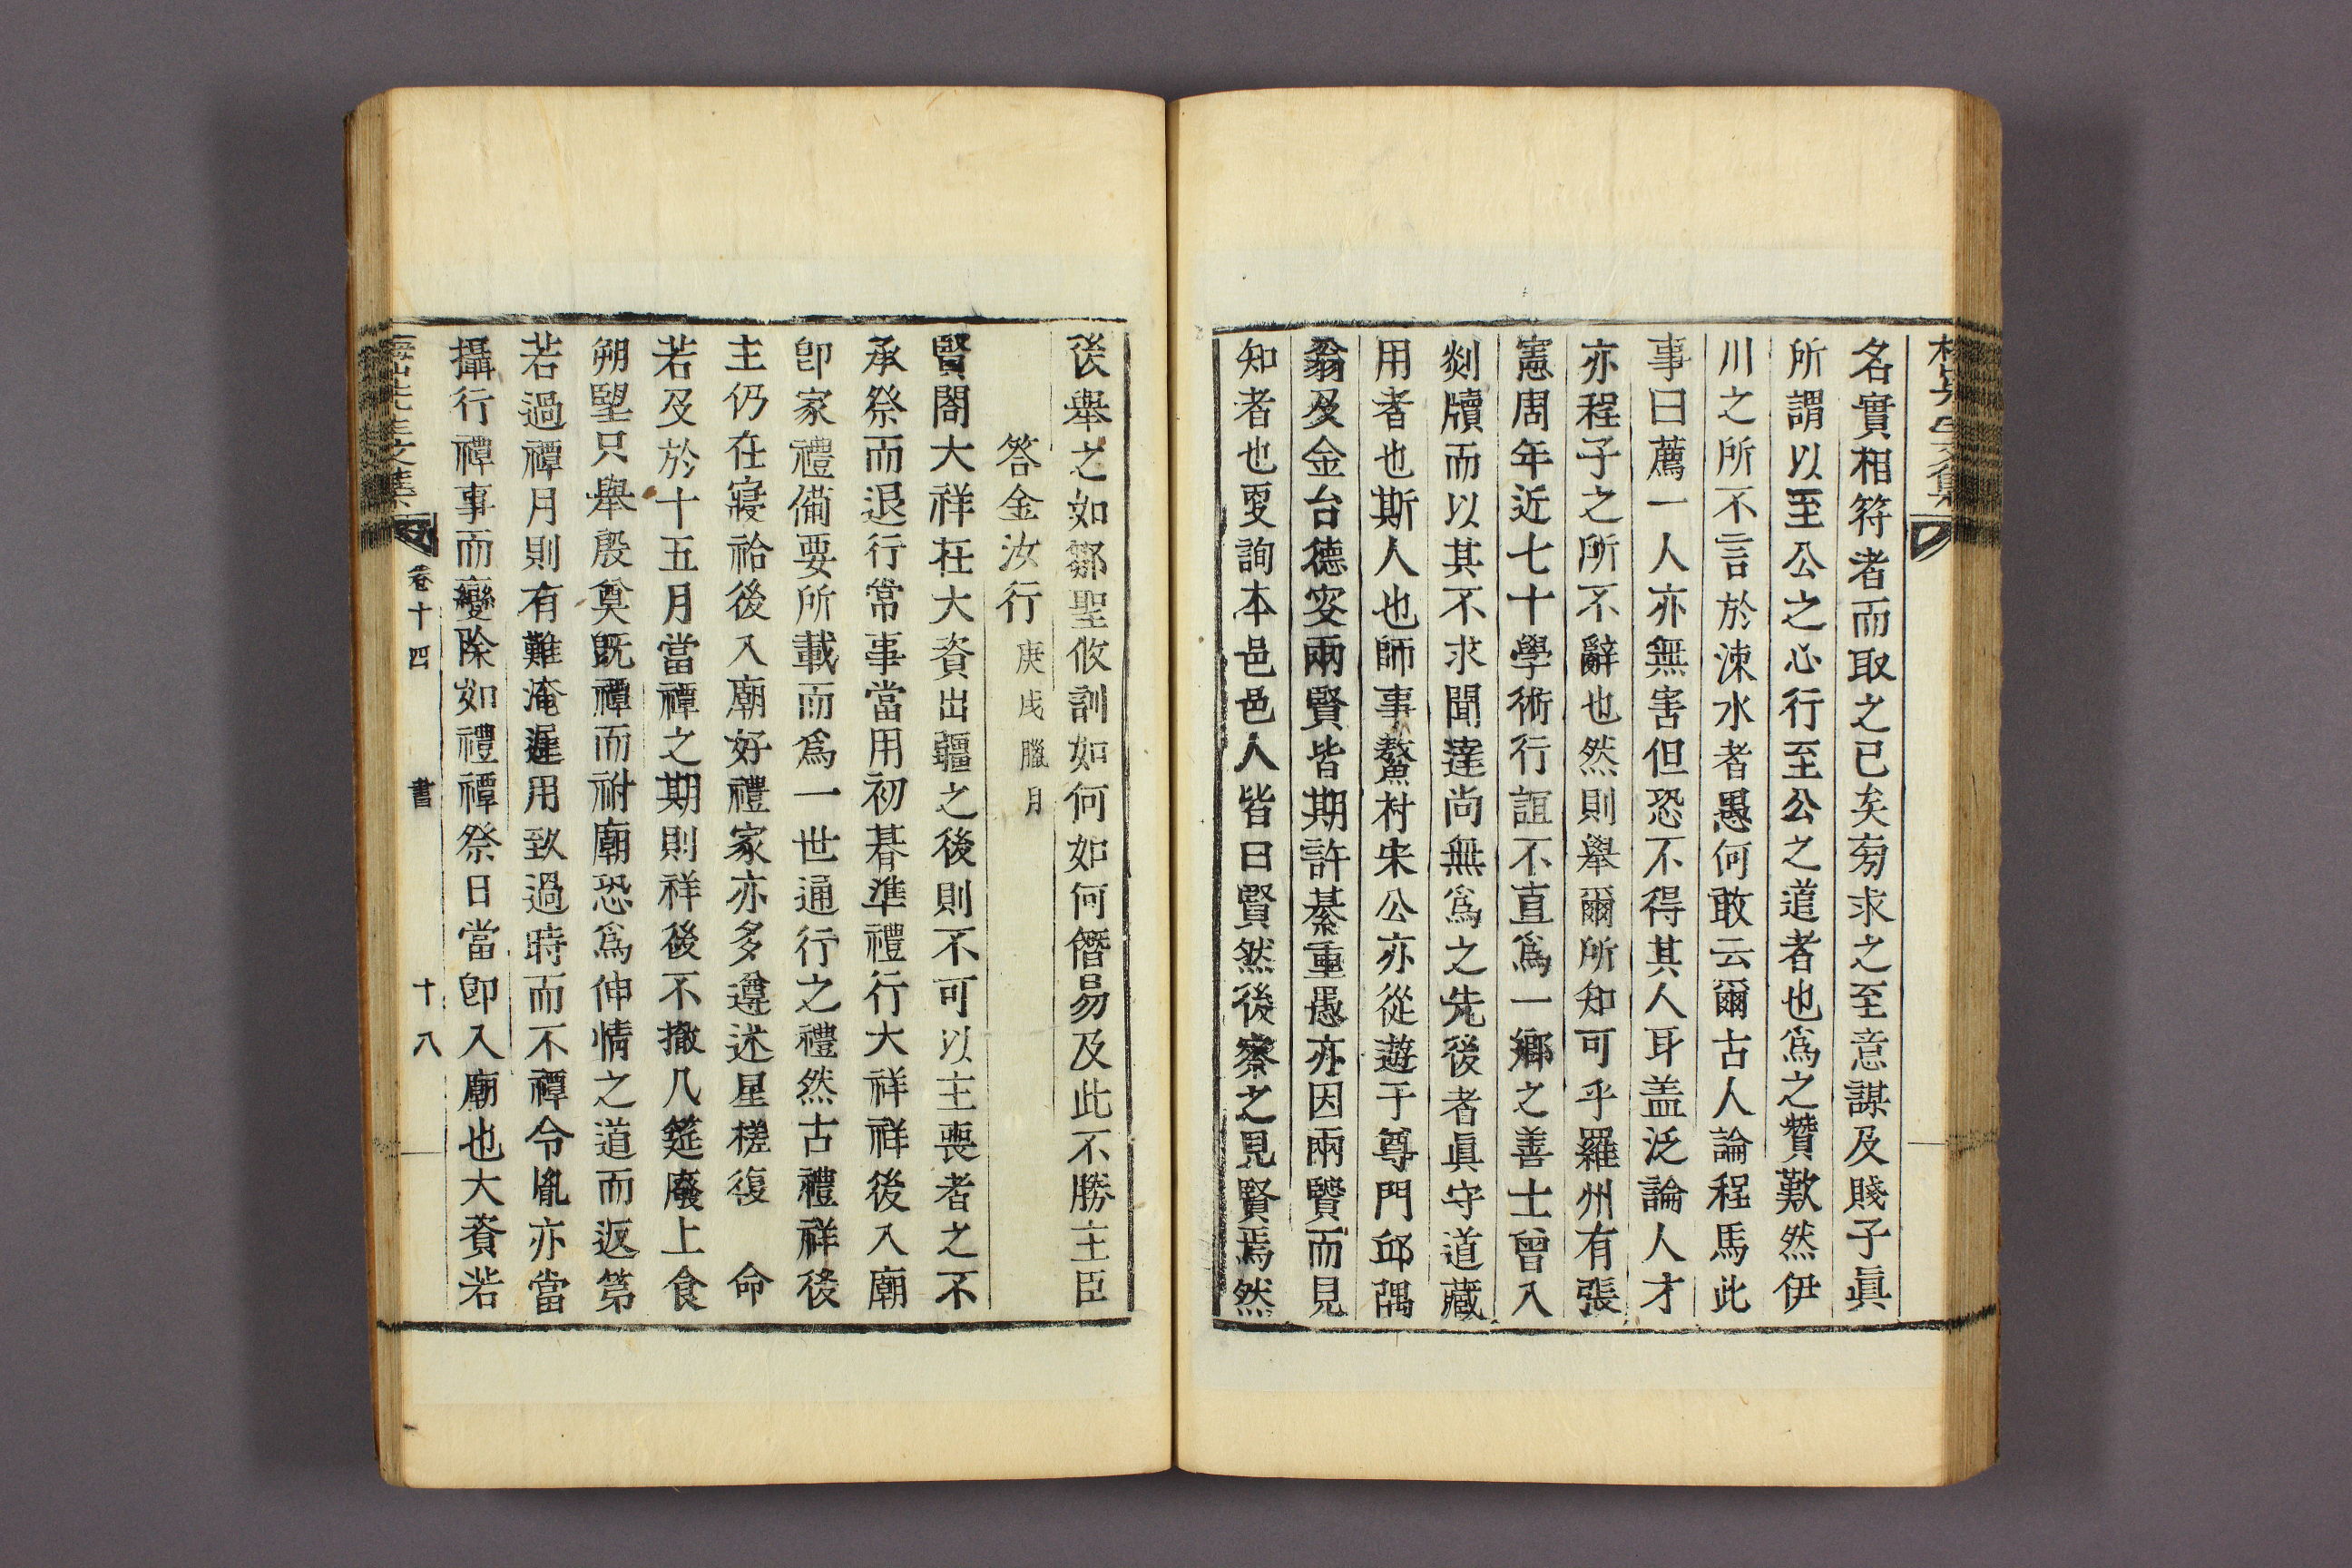 名實相符者而取之已矣旁求之至意謀及賤子眞
所謂以至公之心行至公之道者也爲之贊歎然伊
川之所不言於涑水者愚何敢云爾古人論程馬此
事曰薦一人亦無害但恐不得其人耳盖泛論人才
亦程子之所不辭也然則舉爾所知可乎羅州有張
憲周年近七十學術行誼不直爲一鄉之善士曾入
剡牘而以其不求聞達尚無爲之先後者眞守道藏
用者也斯人也師事鰲村宋公亦從遊于尊門邱隅
翁及金台德安兩賢皆期許綦重愚亦因兩賢而見
知者也更詢本邑邑人皆曰賢然後察之見賢焉然
後舉之如鄒聖攸訓如何如何僭易及此不勝主臣
答金汝行 庚戌臘月
賢閤大祥在大資出疆之後則不可以主喪者之不
承祭而退行常事當用初朞準禮行大祥祥後入廟
卽家禮備要所載而爲一世通行之禮然古禮祥後
主仍在寢祫後入廟好禮家亦多遵述星槎復 命
若及於十五月當禫之期則祥後不撤几筵廢上食
朔朢只舉殷奠旣禫而祔廟恐爲伸情之道而返第
若過禫月則有難淹遲用致過時而不禫令胤亦當
攝行禫事而變除如禮禫祭日當卽入廟也大賚若
卷十四 書 十八